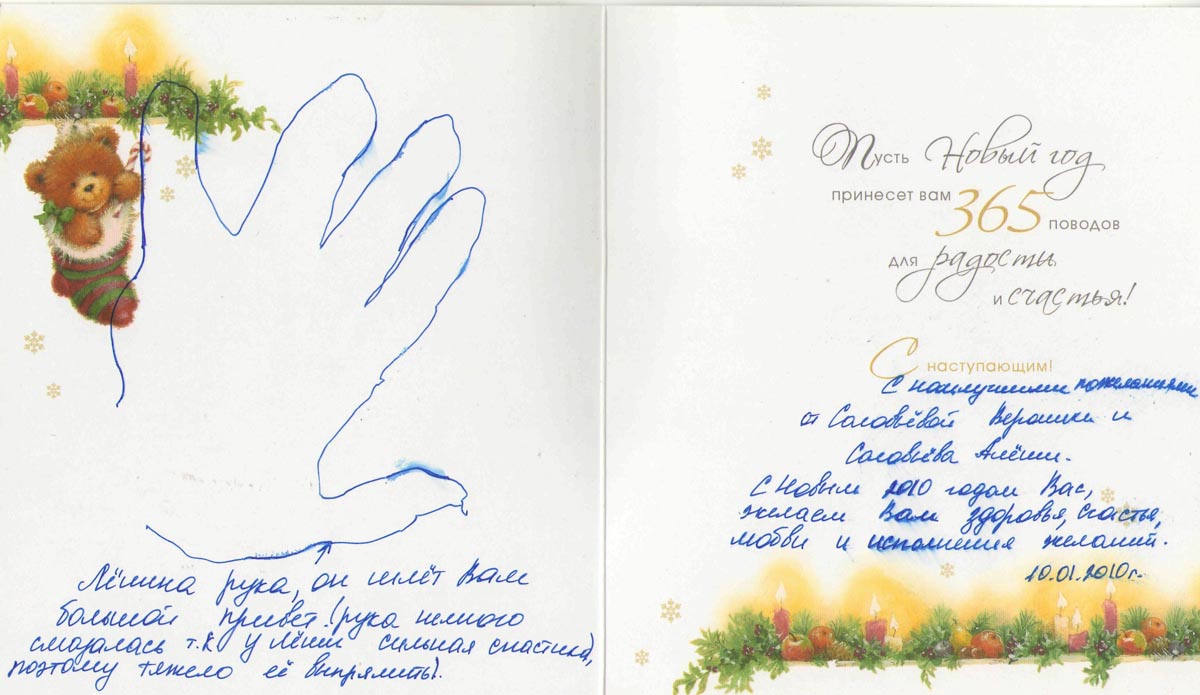 Лёшина рука, он шлёт Вам
большой привет! (рука немного
смазалась т.к у Лёши сильная спастика,
поэтому тяжело её выпрямить).
Пусть Новый год
принесет вам 365 поводов
для радости
и счастья!
С наступающим!
С наилучшими пожеланиями
от Соловьёвой Верошки и
Соловьёва Алёши.
С Новым 2010 годом Вас,
желаем Вам здоровья, счастья,
любви и исполнения желаний.
10.01.2010г.